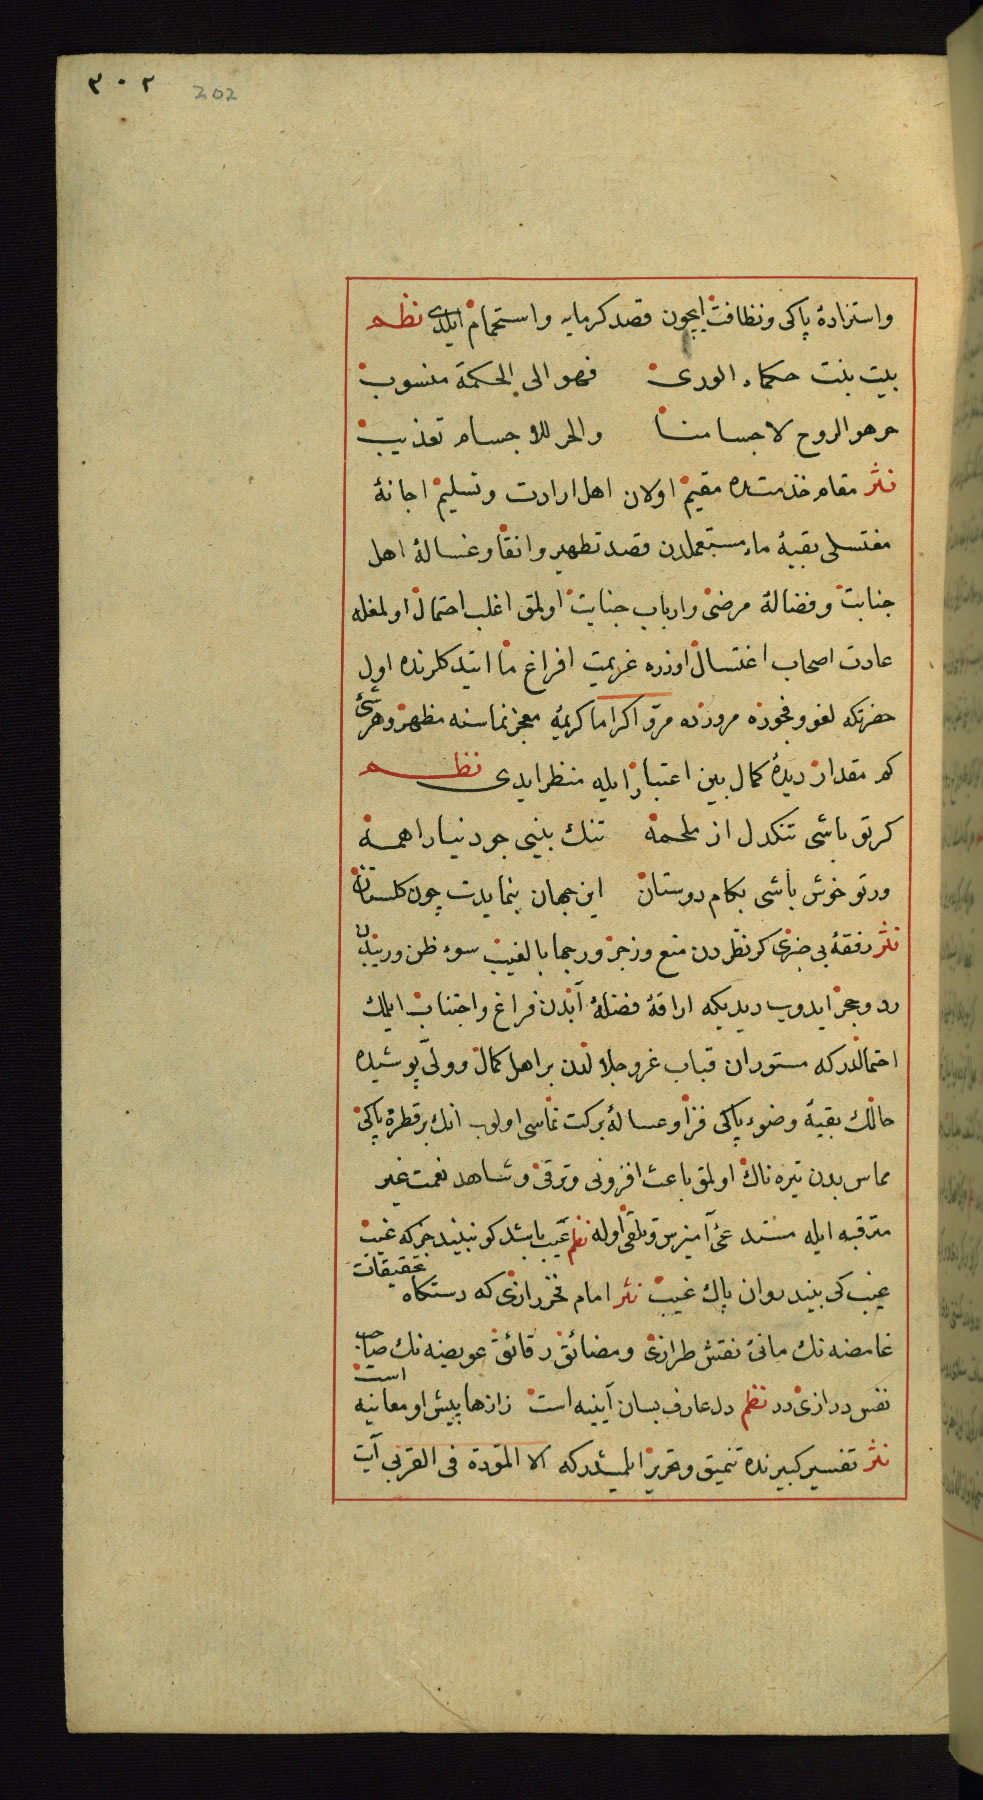 ٣٠٢ 202
واستزادهٔ پاکی ونظافت ایچون قصد کرمابه واستحمام ایلدی نظم
بیت بنت حکماء الوری فهو الی الحکمة منسوب
حرهو الروح لاجسامنا والحر للاجسام تعذیب
نثر مقام خذمتده مقیم اولان اهل ارادت وتسلیم اجانهٔ
مغتسلی بقیهٔ ماء مستعملدن قصد تطهیر وانقا وغسالهٔ اهل
جنابت وفضالهٔ مرضی وارباب جنایت اولمق اغلب احتمال اولمغله
عادت اصحاب اغتسال اوزره عزیمت افراغ ما ایتدکلرنده اول
حضرتکه لغو وفجوره مرورنده مروّا کراما کریمهٔ معجز نماسنه مظهر وهر شیٔ
کم مقدار دیدهٔ کمال بین اعتبار ایله منظر ایدی نظم
کر تو باشی تنکدل از ملحمه تنك بینی جو دنیا را همه
ور تو خوش باشی بکام دوستان این جهان بنمایدت چون کلستان
نثر رفقهٔ بی خبری کر نظردن منع وزجر ورجما بالغیب سوء ظن وریبدن
رد وحجر ایدوب دیدیکه اراقهٔ فضلهٔ آبدن فراغ واجتناب ایلك
احتمالدرکه مستوران قباب عز وجلالدن بر اهل کمال وولیّ پوشیده
حالك بقیهٔ وضوء پاکی فزا وغسالهٔ برکت نماسی اولوب انك بر قطرهٔ پاکی
مماس بدن تیره ناك اولمق باعث افزونی وترقی وشاهد نعمت غیر
مترقبه ایله مستدعیٔ آمیزس وتلقی اوله نظم عیب باشد کو نبیند جز که عیب
عیب کی بیند روان پاك غیب نثر امام فخر رازی که دستکاه تحقیقات
غامضه نك مانیٔ نقش طرازی ومضائق دقائق عویصه نك صاحب
نفس درازی در نظم دل عارف بسان آیینه است رازها پیش او معاینه است
نثر تفسیر کبیرنده تنمیق وتحریر ایلمیشدرکه الا المودة فی القربی آیت